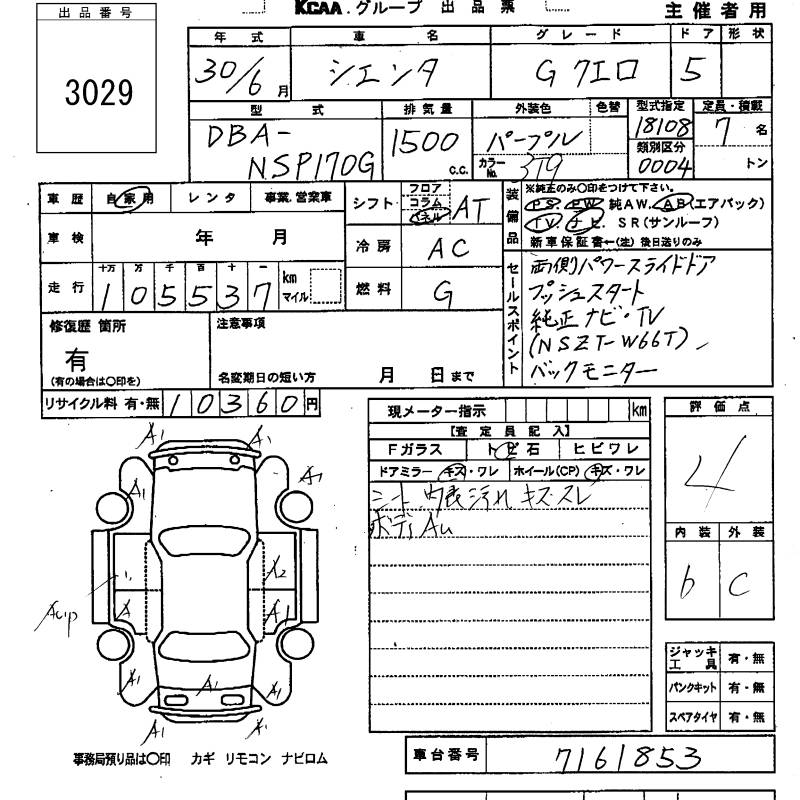 出品番号
3029
KCAA.グループ 出品票
主催者用
年式 車名 グレード ドア 形状
30/6月 シエンタ G クエロ 5
型式 排気量 外装色 色替 型式指定 定員・積載
DBA-NSP170G 1500 c.c. パープル 18108 7名
カラーNo. 3T9 類別区分 0004 トン
車歴 自家用 レンタ 事業.営業車
車検 年 月
走行 十万 万 千 百 十 一
105537 km マイル
シフト フロア コラム パネル AT
冷房 AC
燃料 G
装備品 ※純正のみ○印をつけて下さい。
PS. PW. 純AW. AB(エアバック)
TV. ナビ. SR(サンルーフ)
新車保証書―(定) 後日送りのみ
セールスポイント
両側パワースライドドア
プッシュスタート
純正ナビ・TV
(NSZT-W66T)
バックモニター
修復歴 箇所
有
(有の場合は○印を)
注意事項
名変期日の短い方 月 日まで
リサイクル料 有・無 10360円
現メーター指示 km
【査定員記入】
Fガラス トビ石 ヒビワレ
ドアミラー キズ・ワレ ホイール(CP) キズ・ワレ
シート 内装汚れ キズ・スレ
ボディ AU
評価点
4
内装 外装
b C
ジャッキ工具 有・無
パンクキット 有・無
スペアタイヤ 有・無
A1 A1
A1 A1
A2
A A1
A1 A1 A1
A1 A1
事務局預り品は○印 カギ リモコン ナビロム
車台番号 7161853